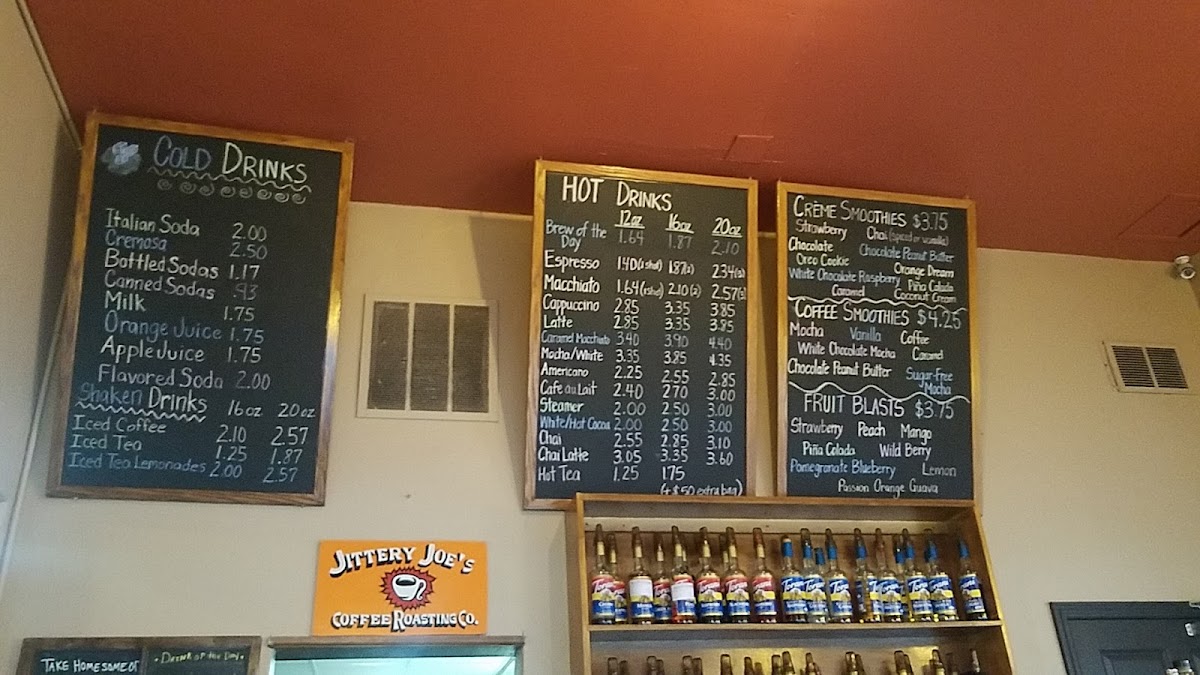 COLD DRINKS
Italian Soda 2.00
Cremosa 2.50
Bottled Sodas 1.17
Canned Sodas .93
Milk 1.75
Orange Juice 1.75
Apple Juice 1.75
Flavored Soda 2.00
Shaken Drinks 16oz 20oz
Iced Coffee 2.10 2.57
Iced Tea 1.25 1.87
Iced Tea Lemonades 2.00 2.57
HOT DRINKS
12oz 16oz 20oz
Brew of the Day 1.64 1.87 2.10
Espresso 1.40 (1 shot) 1.87(2) 2.34(3)
Macchiato 1.64(1 shot) 2.10(2) 2.57(3)
Cappuccino 2.85 3.35 3.85
Latte 2.85 3.35 3.85
Caramel Macchiato 3.40 3.90 4.40
Mocha/White 3.35 3.85 4.35
Americano 2.25 2.55 2.85
Cafe au Lait 2.40 2.70 3.00
Steamer 2.00 2.50 3.00
White/Hot Cocoa 2.00 2.50 3.00
Chai 2.55 2.85 3.10
Chai Latte 3.05 3.35 3.60
Hot Tea 1.25 1.75
(+$.50 extra bag)
CRÈME SMOOTHIES $3.75
Strawberry Chai (spiced or vanilla)
Chocolate Chocolate Peanut Butter
Oreo Cookie Orange Dream
White Chocolate Raspberry Piña Colada
Caramel Coconut Cream
COFFEE SMOOTHIES $4.25
Mocha Vanilla Coffee
White Chocolate Mocha Caramel
Chocolate Peanut Butter Sugar-Free Mocha
FRUIT BLASTS $3.75
Strawberry Peach Mango
Piña Colada Wild Berry
Pomegranate Blueberry Lemon
Passion Orange Guava
JITTERY JOE'S
COFFEE ROASTING CO.
TAKE HOME SOME OF
DRINK OF THE DAY
Torani